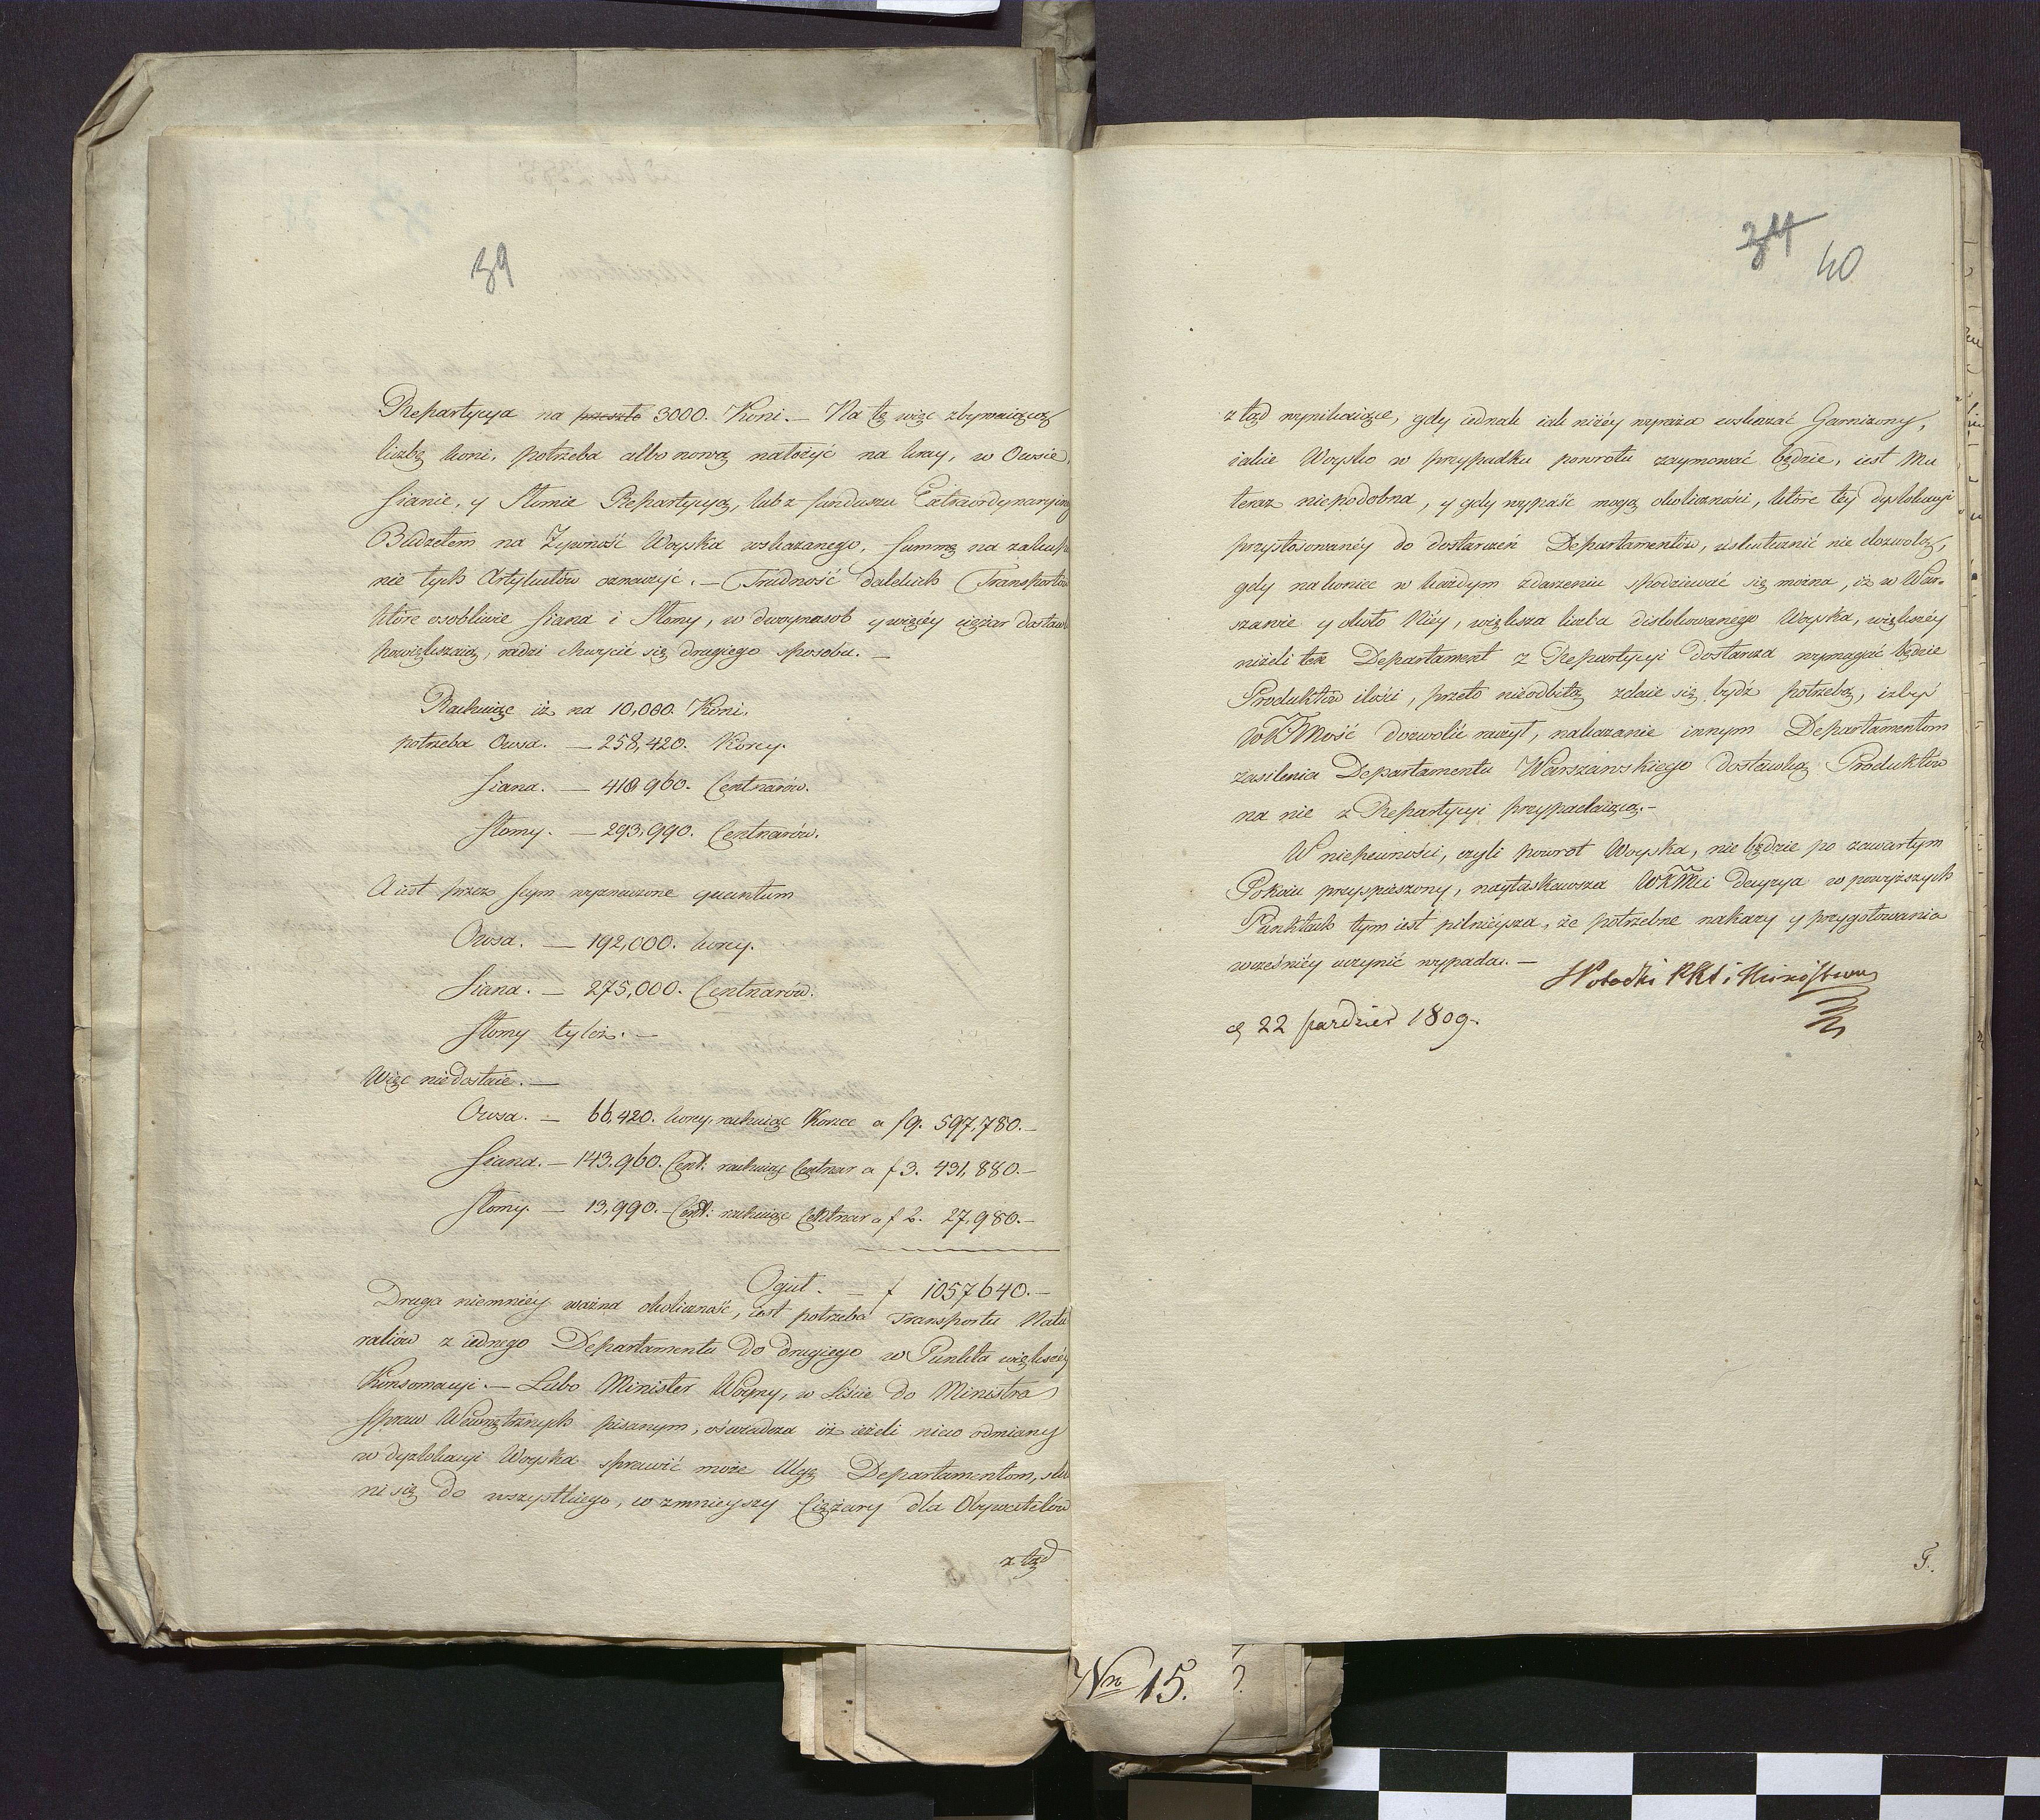 39
Repartycya na przeszło 3000. Koni. — Na tę więc zbywaiącą
liczbę koni, potrzeba albo nową nałożyć na kray, w Owsie,
Sianie, y Słomie Repartycyą, lub z funduszu Extraordynaryiną
Budżetem na Żywność Woyska wskazanego, Summę na zakupie
nie tych Artykułów oznaczyć. — Trudność dalekich Transportów
które osobliwie Siana i Słomy, w dwoynasob y więcéy ciężar dostaw
powiększaią, radzi chwycić się drugiego sposobu. —
Rachuiąc iż na 10,000. Koni,
potrzeba Owsa. — 258,420. Korcy.
Siana. — 418,960. Centnarów.
Słomy. — 293,990. Centnarów.
A iest przez Seym wyznaczone quantum
Owsa. — 192,000. korcy.
Siana. — 275,000. Centnarów.
Słomy tyleż. —
Więc niedostaie. —
Owsa. — 66,420. korcy, rachuiąc Korzec a f 9. 597,780. —
Siana. — 143,960. Cent: rachuiąc Centnar a f 3. 431,880. —
Słomy. — 13,990. — Cent: rachuiąc Centnar a f 2. 27,980. —
Oguł. — f 1057640. —
Druga niemniéy ważna okoliczność, iest potrzeba Transportu Natu
raliów z iednego Departamentu do drugiego w Punkta większéy
Konsomacyi. — Lubo Minister Woyny, w Liście do Ministra
Spraw Wewnętrznych pisanym, oświadcza iż ieżeli nieco odmiany
w dyzlokacyi Woyska sprawić może Ulgę Departamentom, skło
ni się do wszystkiego, co zmnieyszy Ciężary dla Obywatelów
z tąd
34
40
z tąd wynikaiące, gdy iednak iak niżéy wyraża wskazać Garnizony,
iakie Woysko w przypadku powrotu zaymować będzie, iest Mu
teraz niepodobna, y gdy wypaść mogą okoliczności, które téy dyslokacyi
przystosowanéy do dostarczeń Departamentów, uskutecznić nie dozwolą,
gdy nakoniec w każdym zdarzeniu spodziewać się można, iż w War-
szawie y około Niéy, większa liczba dislokowanego Woyska, większéy
niżeli ten Departament z Repartycyi dostarcza wymagać będzie
Produktów ilości, przeto nieodbitą zdaie się bydź potrzebą, iżbyś
WKMość dozwolić raczył, nakazanie innym Departamentom
zasilenia Departamentu Warszawskiego dostawką Produktów
na nie z Repartycyi przypadaiącą. —
W niepewności, czyli powrot Woyska, nie będzie po zawartym
Pokoiu przyspieszony, nayłaskawsza WKMci decyzya w powyższych
Punktach tym iest pilnieysza, że potrzebne nakazy y przygotowania
wcześniéy uczynić wypada. —
d 22 paxdzier 1809.
T.
Nro 15.